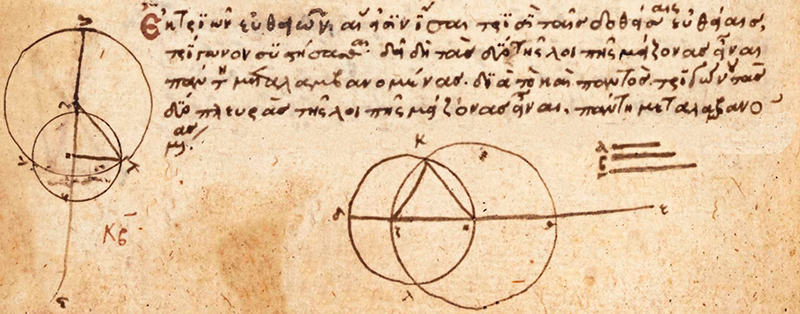 Ἐκ τριῶν εὐθειῶν, αἵ εἰσιν ἴσαι τρισὶ ταῖς δοθείσαις εὐθείαις,
τρίγωνον συστήσασθαι· δεῖ δὴ τὰς δύο τῆς λοιπῆς μείζονας εἶναι
πάντη μεταλαμβανομένας. διὰ τὸ καὶ παντὸς τριγώνου τὰς
δύο πλευρὰς τῆς λοιπῆς μείζονας εἶναι, πάντη μεταλαμβανο
μένας
κβ
Κ